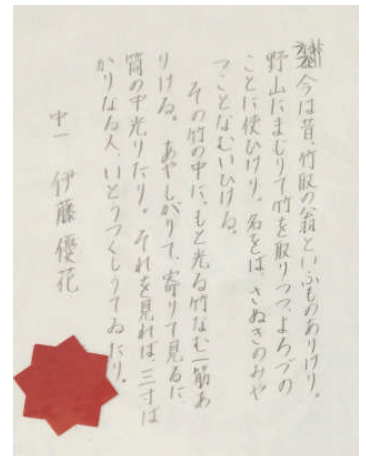 今は昔、竹取の翁といふものありけり。
野山にまじりて竹を取りつつ、よろづの
ことに使ひけり。名をば、さぬきのみや
つことなむいひける。
その竹の中に、もと光る竹なむ一筋あ
りける。あやしがりて、寄りて見るに、
筒の中光りたり。それを見れば、三寸ば
かりなる人、いとうつくしうてゐたり。
中一 伊藤優花